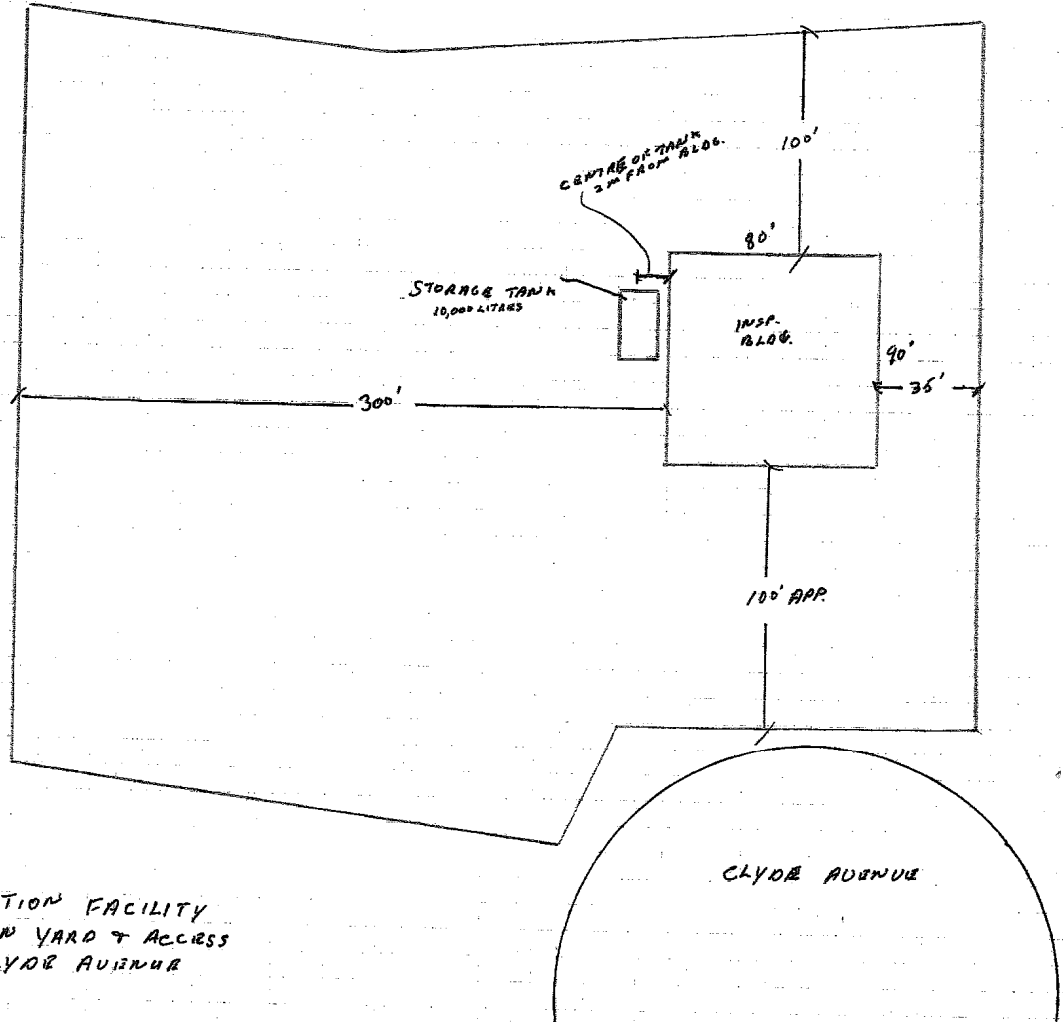 100'
CENTRE OF TANK
2M FROM BLDG.
80'
STORAGE TANK
10,000 LITRES
INSP.
BLDG.
90'
35'
300'
100' APP.
CLYDE AVENUE
TION FACILITY
N YARD & ACCESS
LYDE AVENUE